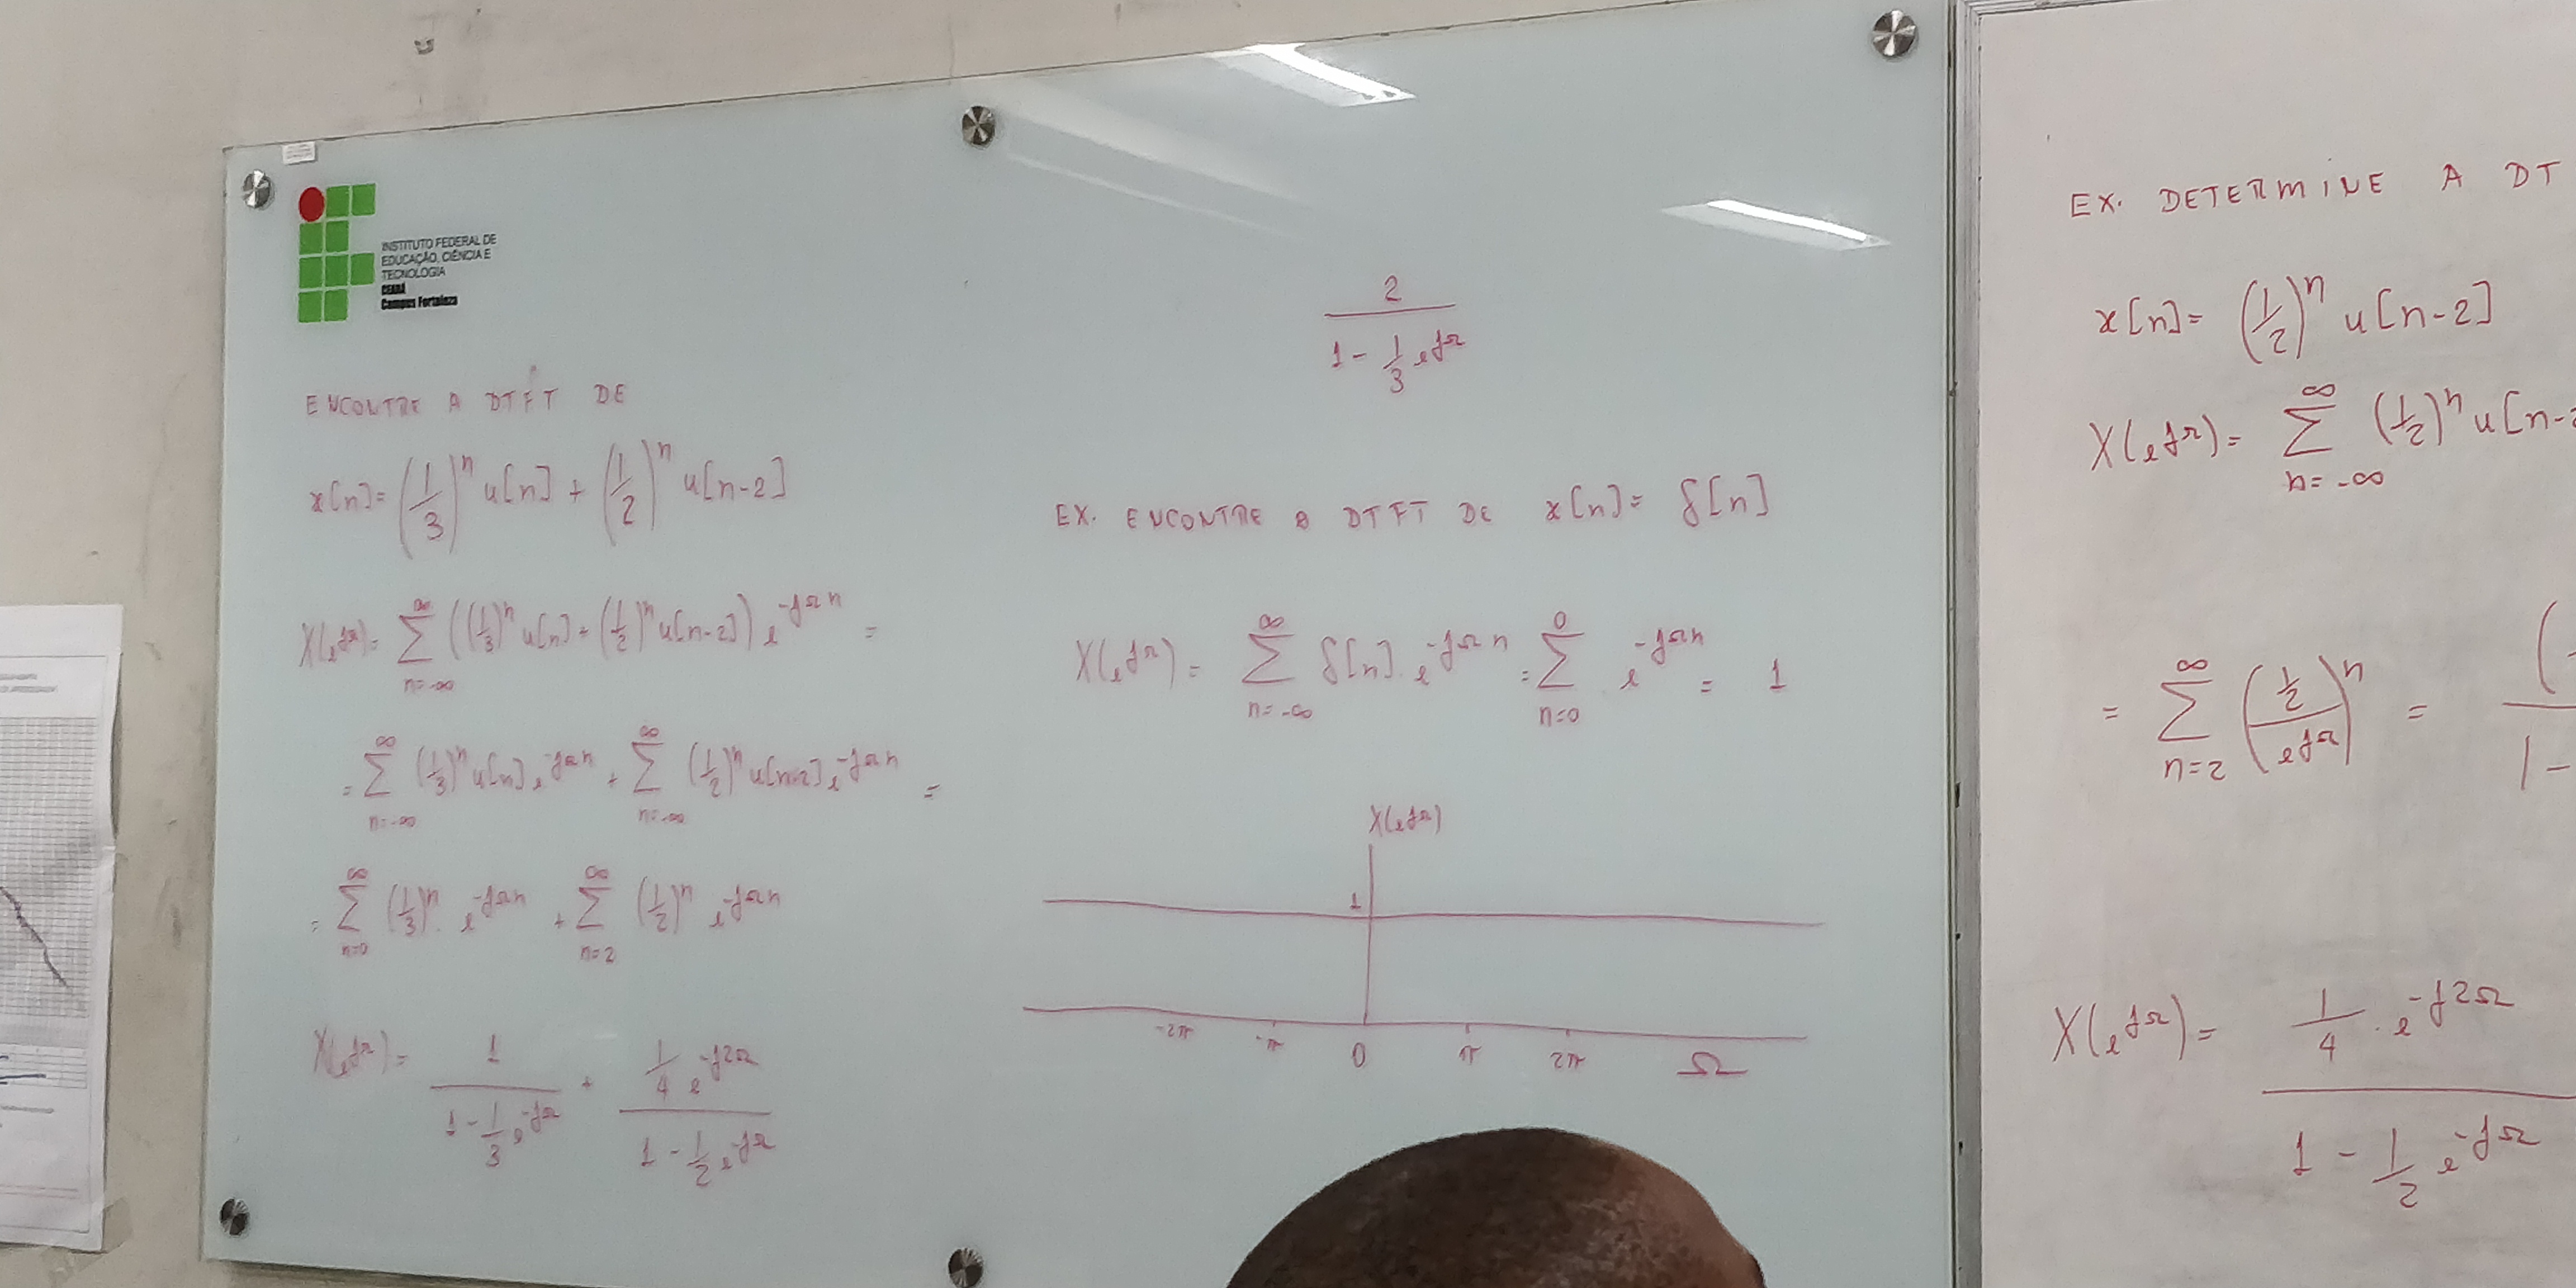 INSTITUTO FEDERAL DE
EDUCAÇÃO, CIÊNCIA E
TECNOLOGIA
CEARÁ
Campus Fortaleza
ENCONTRE A DTFT DE
x[n]= (1/3)^n u[n] + (1/2)^n u[n-2]
X(e^jΩ)= ∑_{n=-∞}^{∞} ((1/3)^n u[n] + (1/2)^n u[n-2]) e^{-jΩn} =
= ∑_{n=-∞}^{∞} (1/3)^n u[n] e^{-jΩn} + ∑_{n=-∞}^{∞} (1/2)^n u[n-2] e^{-jΩn} =
= ∑_{n=0}^{∞} (1/3)^n . e^{-jΩn} + ∑_{n=2}^{∞} (1/2)^n e^{-jΩn}
X(e^jΩ)= 1/(1 - 1/3 e^{-jΩ}) + (1/4 e^{-j2Ω})/(1 - 1/2 e^{-jΩ})
2/(1 - 1/3 e^{jΩ})
EX. ENCONTRE A DTFT DE x[n]= δ[n]
X(e^jΩ) = ∑_{n=-∞}^{∞} δ[n] . e^{-jΩn} = ∑_{n=0}^{0} e^{-jΩn} = 1
X(e^jΩ)
1
-2π -π 0 π 2π Ω
EX. DETERMINE A DT
x[n]= (1/2)^n u[n-2]
X(e^jΩ)= ∑_{n=-∞}^{∞} (1/2)^n u[n-
= ∑_{n=2}^{∞} ((1/2)/e^{jΩ})^n = (
1-
X(e^jΩ)= (1/4 . e^{-j2Ω})/(1 - 1/2 e^{-jΩ})